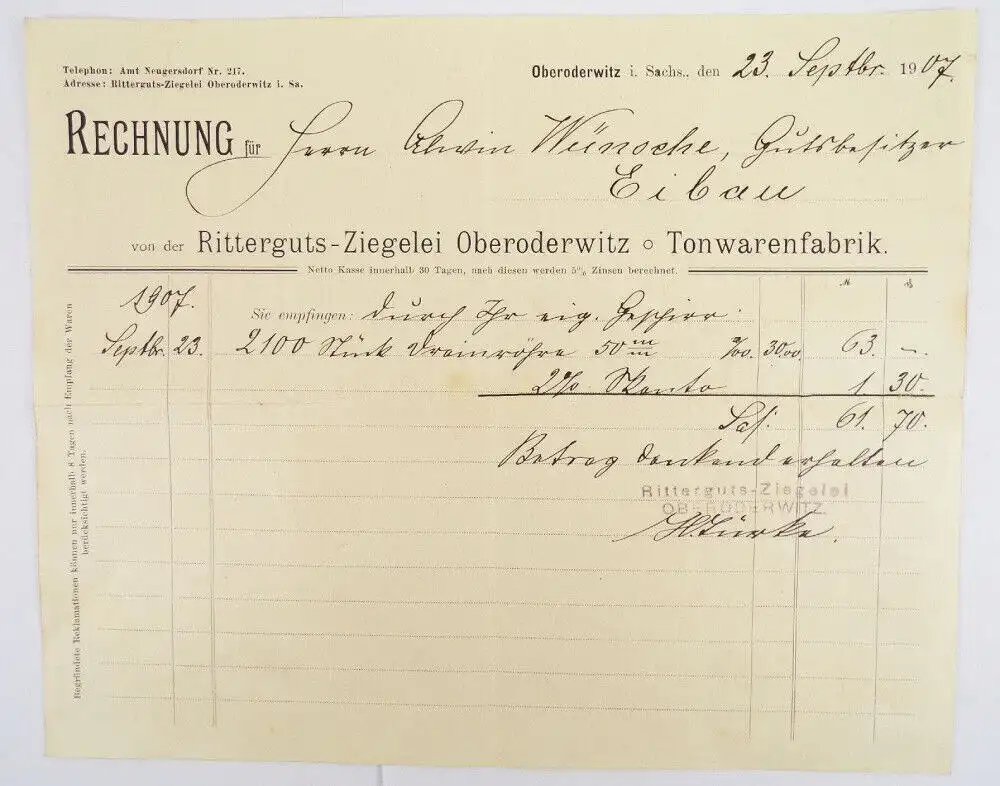 Telephon: Amt Neugersdorf Nr. 217.
Adresse: Ritterguts-Ziegelei Oberoderwitz i. Sa.
Oberoderwitz i. Sachs., den 23. Septbr. 1907.
RECHNUNG für Herrn Alwin Wünsche, Gutsbesitzer
Eibau
von der Ritterguts-Ziegelei Oberoderwitz ○ Tonwarenfabrik.
Netto Kasse innerhalb 30 Tagen, nach diesen werden 5% Zinsen berechnet.
1907.
Sie empfingen: durch Ihr eig. Geschirr.
Septbr. 23. 2100 Stück Drainröhre 50 m/m 30,00. 63. –.
2% Skonto 1. 30.
61. 70.
Betrag dankend erhalten
Ritterguts-Ziegelei
OBERODERWITZ.
Begründete Reklamationen können nur innerhalb 8 Tagen nach Empfang der Waren
berücksichtigt werden.